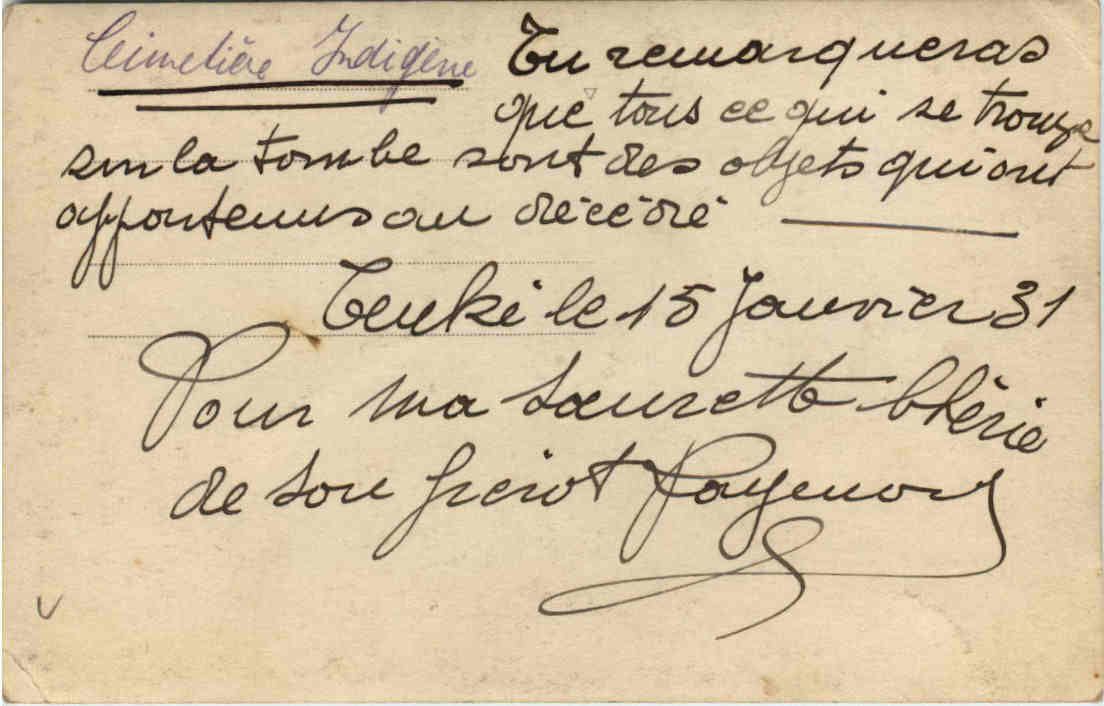 Cimetière Indigène Tu remarqueras
que tous ce qui se trouve
sur la tombe sont des objets qui ont
appartenus au décédé
le 15 Janvier 31
Pour ma sœurette
de son frérot